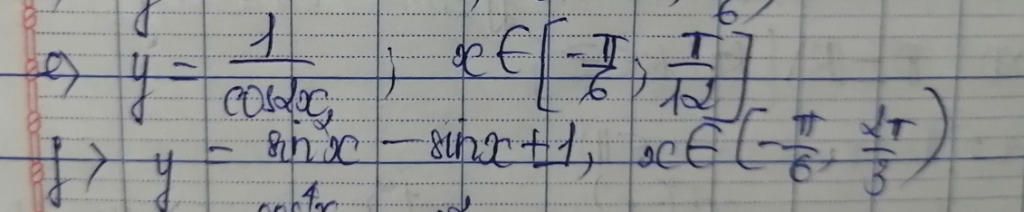 e) y = 1/cos2x, x ∈ [-π/6, π/12]
f) y = sin²x - sinx + 1, x ∈ (-π/6, 2π/3)